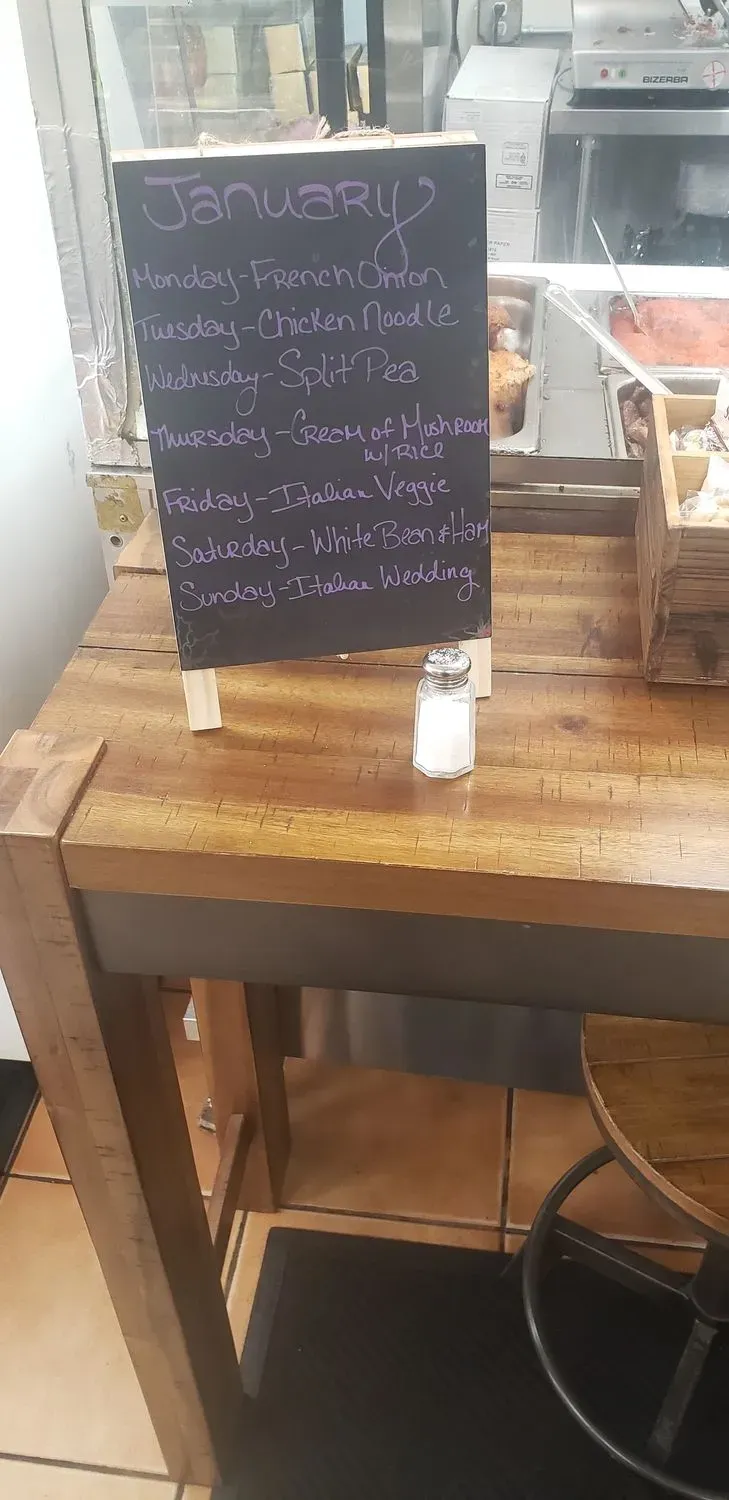 BIZERBA
January
Monday-French Onion
Tuesday-Chicken Noodle
Wednesday-Split Pea
Thursday-Cream of Mushroom
w/Rice
Friday-Italian Veggie
Saturday-White Bean & Ham
Sunday-Italian Wedding